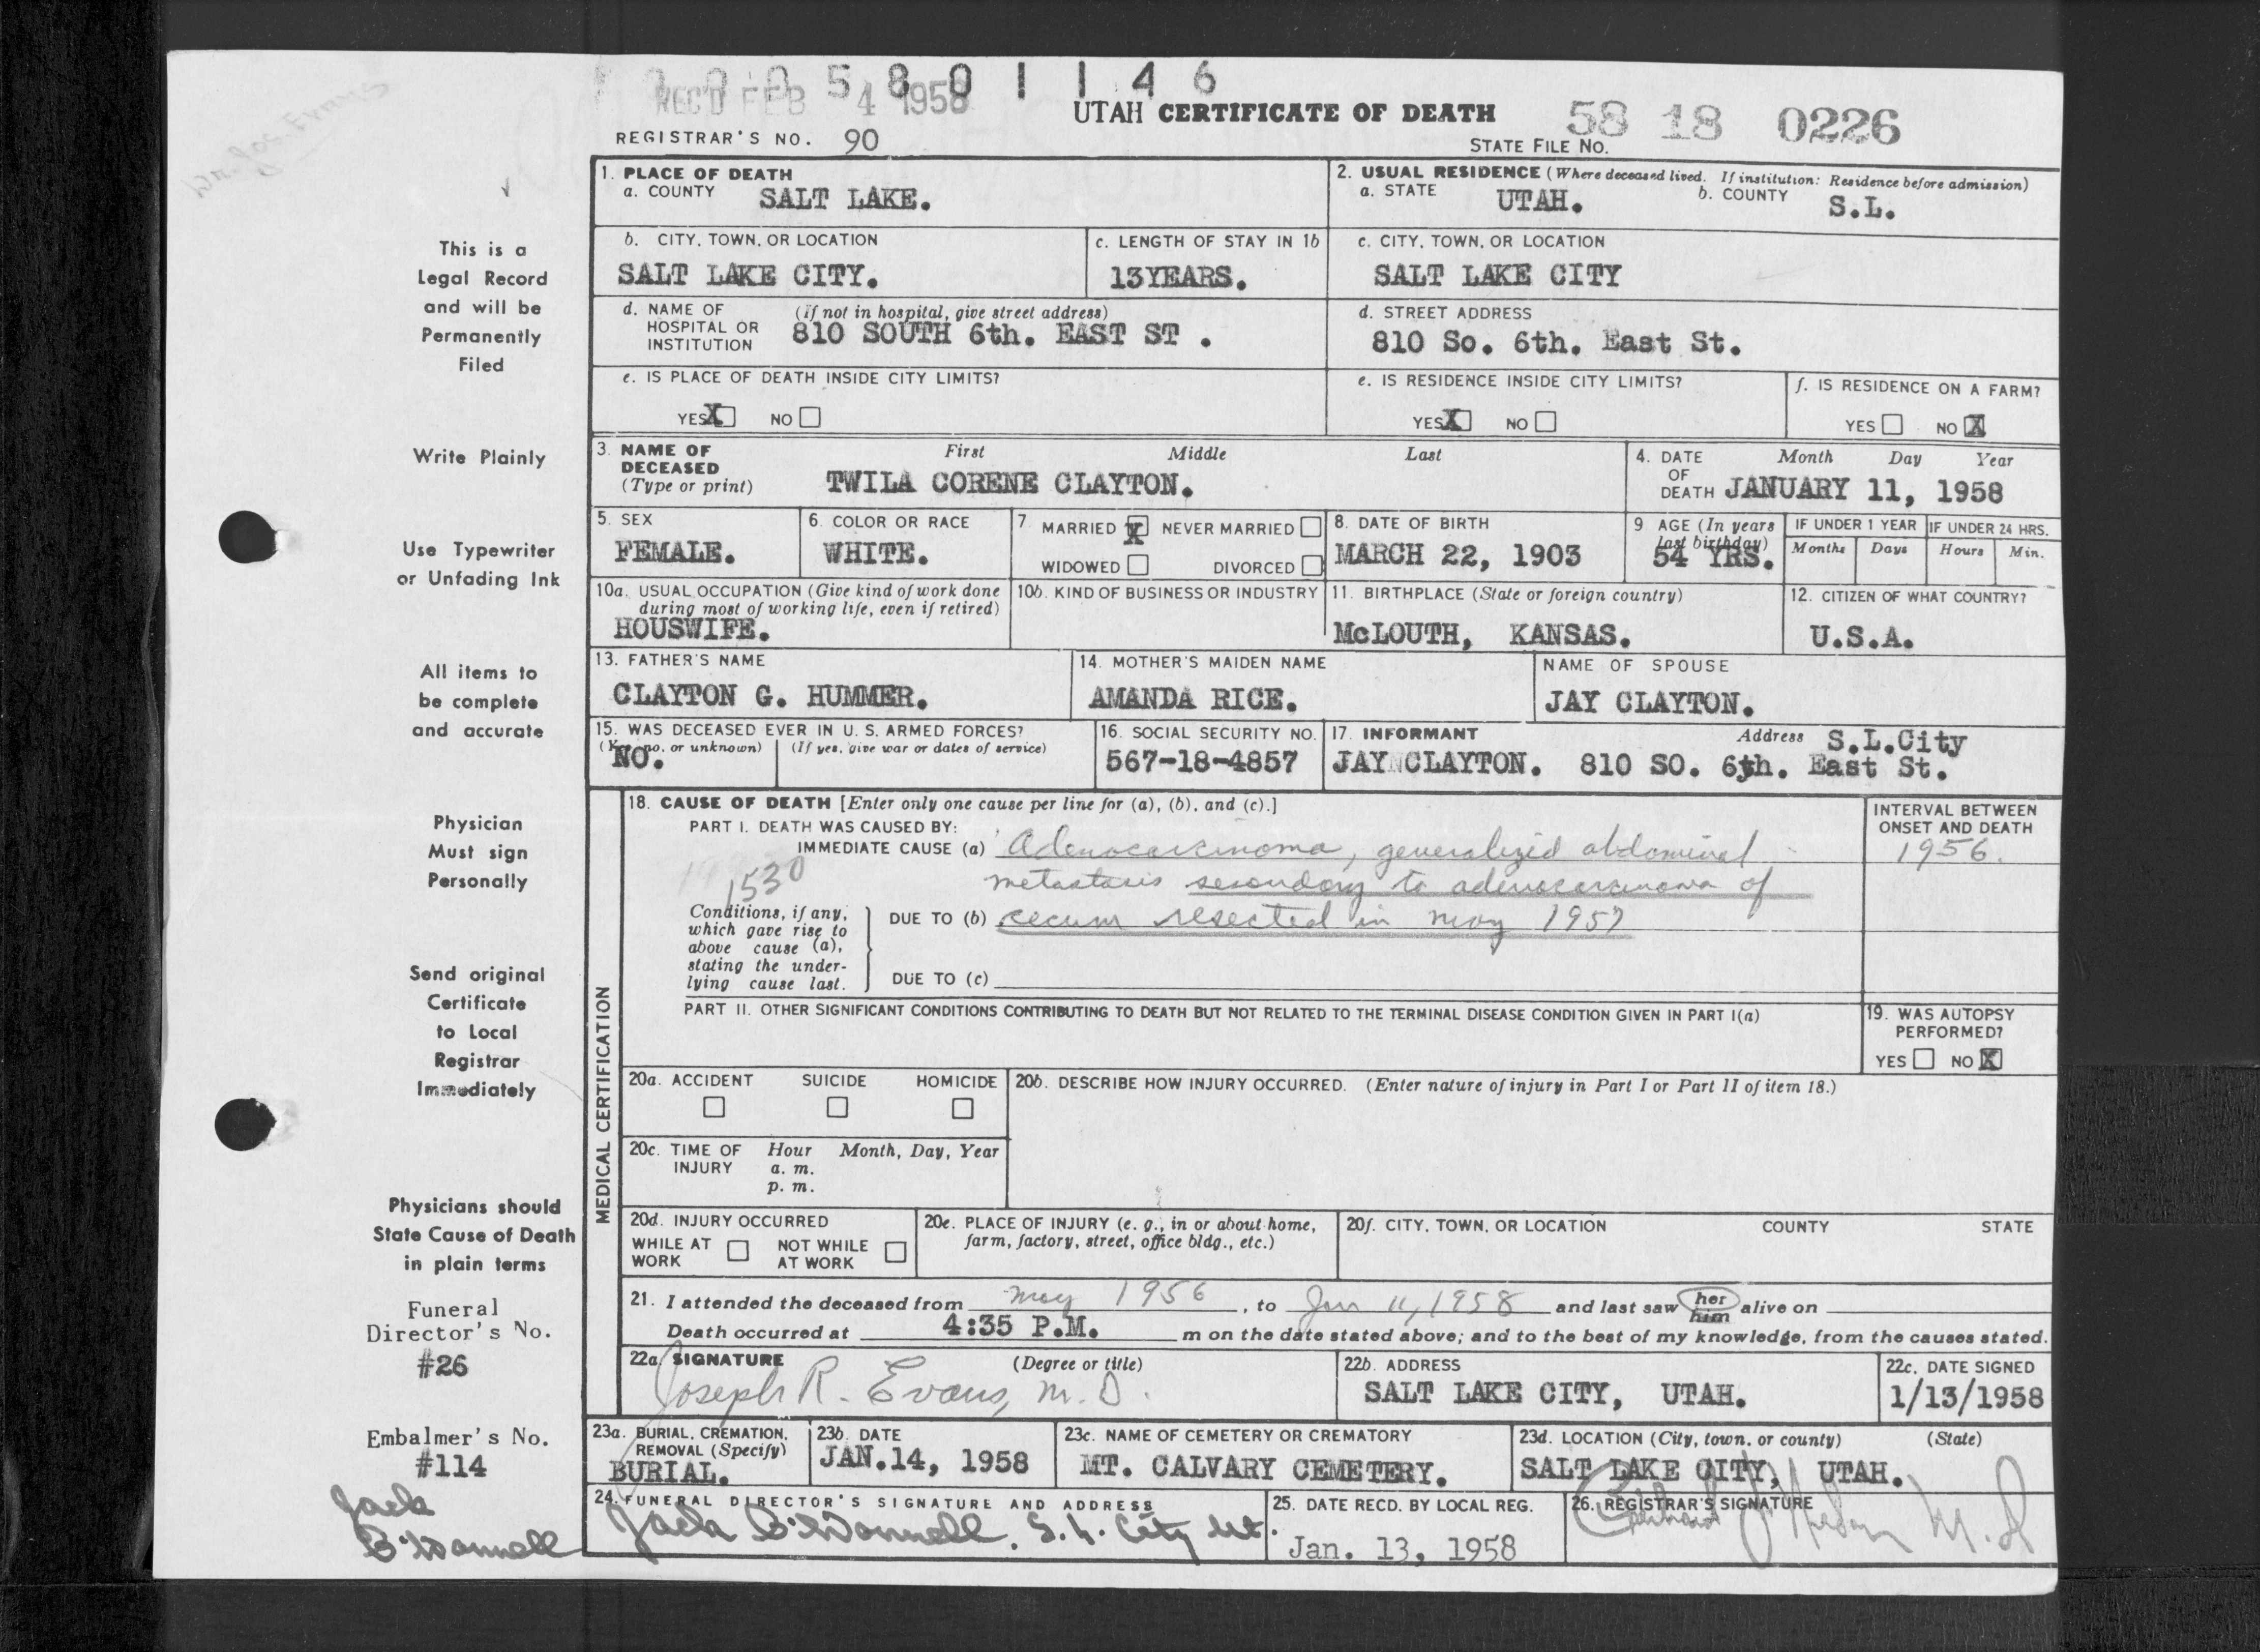 5 8 0 1 1 4 6
REC'D FEB 4 1958
UTAH CERTIFICATE OF DEATH
58 18 0226
REGISTRAR'S NO. 90
STATE FILE No.
1. PLACE OF DEATH
a. COUNTY SALT LAKE.
2. USUAL RESIDENCE (Where deceased lived. If institution: Residence before admission)
a. STATE UTAH. b. COUNTY S.L.
This is a
Legal Record
and will be
Permanently
Filed
b. CITY, TOWN, OR LOCATION
SALT LAKE CITY.
c. LENGTH OF STAY IN 1b
13YEARS.
c. CITY, TOWN, OR LOCATION
SALT LAKE CITY
d. NAME OF HOSPITAL OR INSTITUTION (If not in hospital, give street address)
810 SOUTH 6th. EAST ST .
d. STREET ADDRESS
810 So. 6th. East St.
e. IS PLACE OF DEATH INSIDE CITY LIMITS?
YES X NO
e. IS RESIDENCE INSIDE CITY LIMITS?
YES X NO
f. IS RESIDENCE ON A FARM?
YES NO X
Write Plainly
3. NAME OF DECEASED (Type or print)
First Middle Last
TWILA CORENE CLAYTON.
4. DATE OF DEATH Month Day Year
JANUARY 11, 1958
Use Typewriter
or Unfading Ink
5. SEX
FEMALE.
6. COLOR OR RACE
WHITE.
7. MARRIED X NEVER MARRIED
WIDOWED DIVORCED
8. DATE OF BIRTH
MARCH 22, 1903
9 AGE (In years last birthday)
54 YRS.
IF UNDER 1 YEAR IF UNDER 24 HRS.
Months Days Hours Min.
10a. USUAL OCCUPATION (Give kind of work done during most of working life, even if retired)
HOUSWIFE.
10b. KIND OF BUSINESS OR INDUSTRY
11. BIRTHPLACE (State or foreign country)
McLOUTH, KANSAS.
12. CITIZEN OF WHAT COUNTRY?
U.S.A.
All items to
be complete
and accurate
13. FATHER'S NAME
CLAYTON G. HUMMER.
14. MOTHER'S MAIDEN NAME
AMANDA RICE.
NAME OF SPOUSE
JAY CLAYTON.
15. WAS DECEASED EVER IN U. S. ARMED FORCES?
(Yes, no, or unknown) (If yes, give war or dates of service)
NO.
16. SOCIAL SECURITY NO.
567-18-4857
17. INFORMANT Address S.L.City
JAY CLAYTON. 810 SO. 6th. East St.
Physician
Must sign
Personally
MEDICAL CERTIFICATION
18. CAUSE OF DEATH [Enter only one cause per line for (a), (b), and (c).]
INTERVAL BETWEEN ONSET AND DEATH
1956.
PART I. DEATH WAS CAUSED BY:
IMMEDIATE CAUSE (a) Adenocarcinoma, generalized abdominal
1530
metastasis secondary to adenocarcinoma of
Conditions, if any, which gave rise to above cause (a), stating the underlying cause last.
DUE TO (b) cecum resected in may 1957
DUE TO (c)
Send original
Certificate
to Local
Registrar
Immediately
PART II. OTHER SIGNIFICANT CONDITIONS CONTRIBUTING TO DEATH BUT NOT RELATED TO THE TERMINAL DISEASE CONDITION GIVEN IN PART I(a)
19. WAS AUTOPSY PERFORMED?
YES NO X
20a. ACCIDENT SUICIDE HOMICIDE
20b. DESCRIBE HOW INJURY OCCURRED. (Enter nature of injury in Part I or Part II of item 18.)
20c. TIME OF INJURY Hour Month, Day, Year
a. m.
p. m.
Physicians should
State Cause of Death
in plain terms
20d. INJURY OCCURRED
WHILE AT WORK NOT WHILE AT WORK
20e. PLACE OF INJURY (e. g., in or about home, farm, factory, street, office bldg., etc.)
20f. CITY, TOWN, OR LOCATION COUNTY STATE
Funeral
Director's No.
#26
21. I attended the deceased from may 1956, to Jan 11, 1958 and last saw her him alive on
Death occurred at 4:35 P.M. m on the date stated above; and to the best of my knowledge, from the causes stated.
22a SIGNATURE (Degree or title)
Joseph R. Evans, M.D.
22b. ADDRESS
SALT LAKE CITY, UTAH.
22c. DATE SIGNED
1/13/1958
Embalmer's No.
#114
Jack
O'Donnell
23a. BURIAL, CREMATION, REMOVAL (Specify)
BURIAL.
23b. DATE
JAN.14, 1958
23c. NAME OF CEMETERY OR CREMATORY
MT. CALVARY CEMETERY.
23d. LOCATION (City, town, or county) (State)
SALT LAKE CITY, UTAH.
24. FUNERAL DIRECTOR'S SIGNATURE AND ADDRESS
Jack O'Donnell. S.L. City Ut.
25. DATE RECD. BY LOCAL REG.
Jan. 13, 1958
26. REGISTRAR'S SIGNATURE
M.D